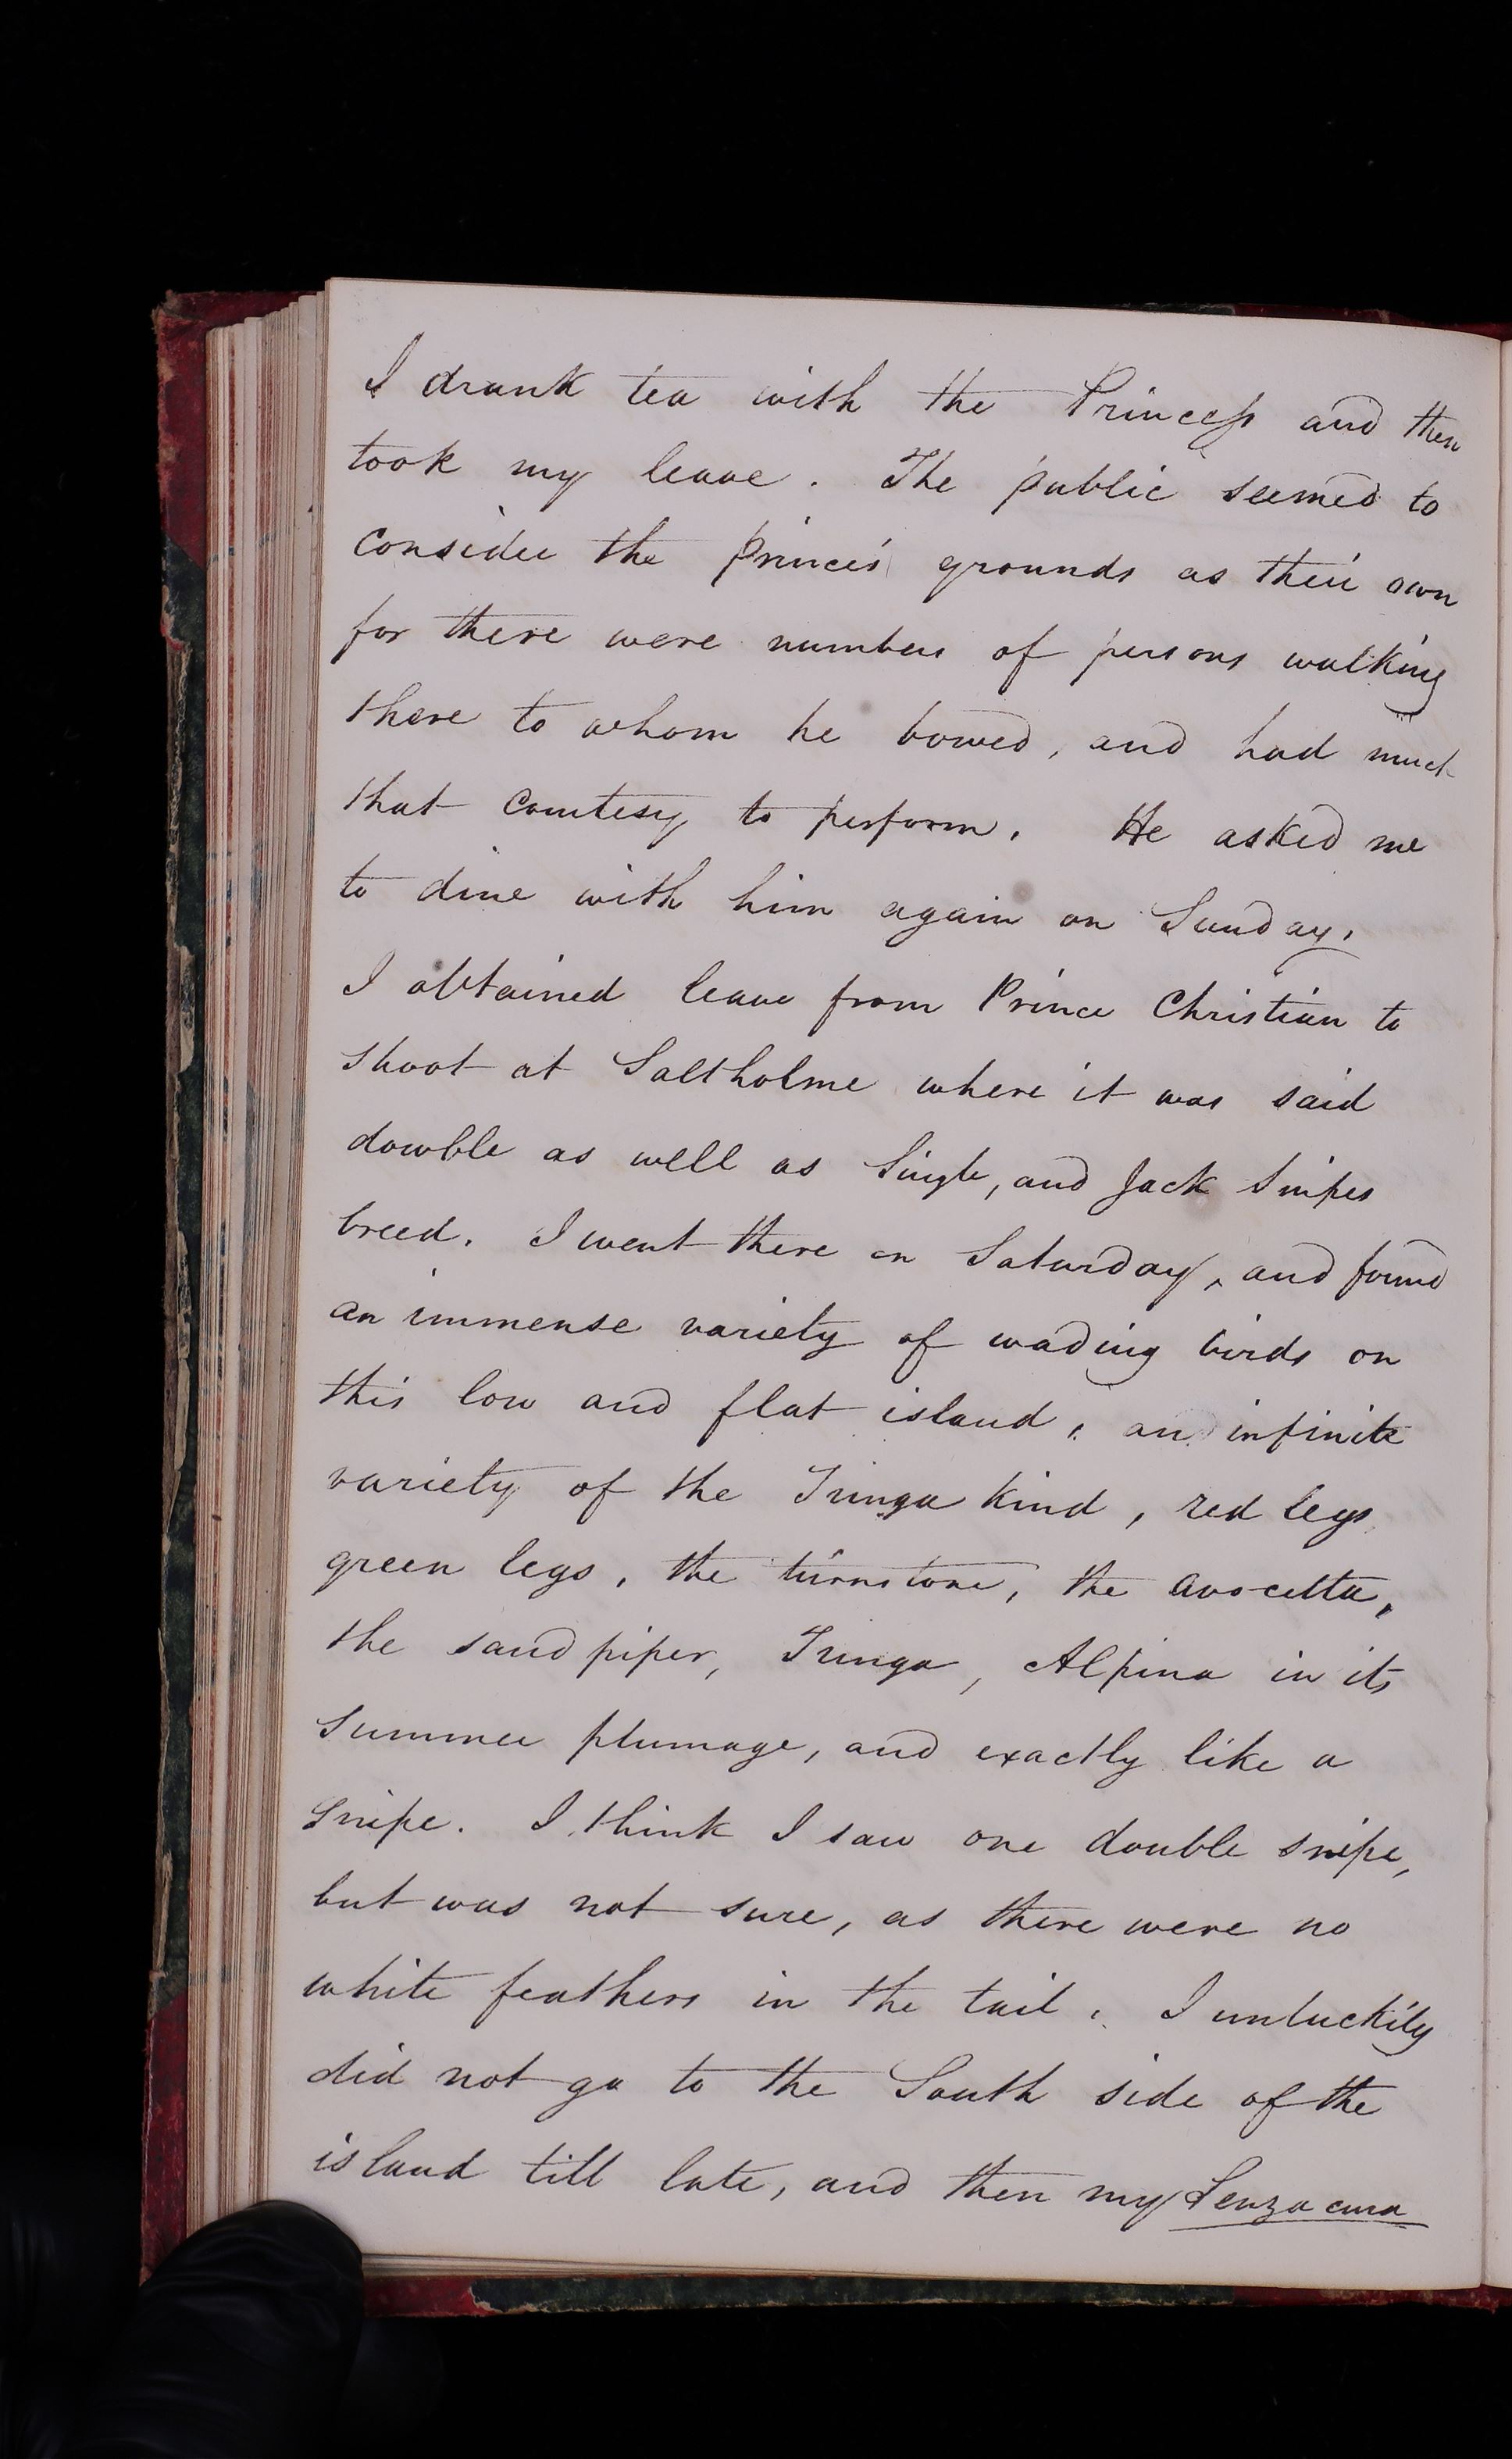 I drank tea with the Princess and then
took my leave. The public seemed to
consider the Prince's grounds as their own
for there were numbers of persons walking
there to whom he bowed, and had much
that courtesy to perform. He asked me
to dine with him again on Sunday.
I obtained leave from Prince Christian to
shoot at Saltholme where it was said
dowble as well as Single, and Jack Snipes
breed. I went there on Saturday, and found
an immense variety of wading birds on
this low and flat island, an infinite
variety of the Tringa kind, red legs
green legs, the turnstone, the avocetta,
the sandpiper, Tringa, Alpina in its
summer plumage, and exactly like a
Snipe. I think I saw one double snipe,
but was not sure, as there were no
white feathers in the tail. I unluckily
did not go to the South side of the
island till late, and then my Senza cura